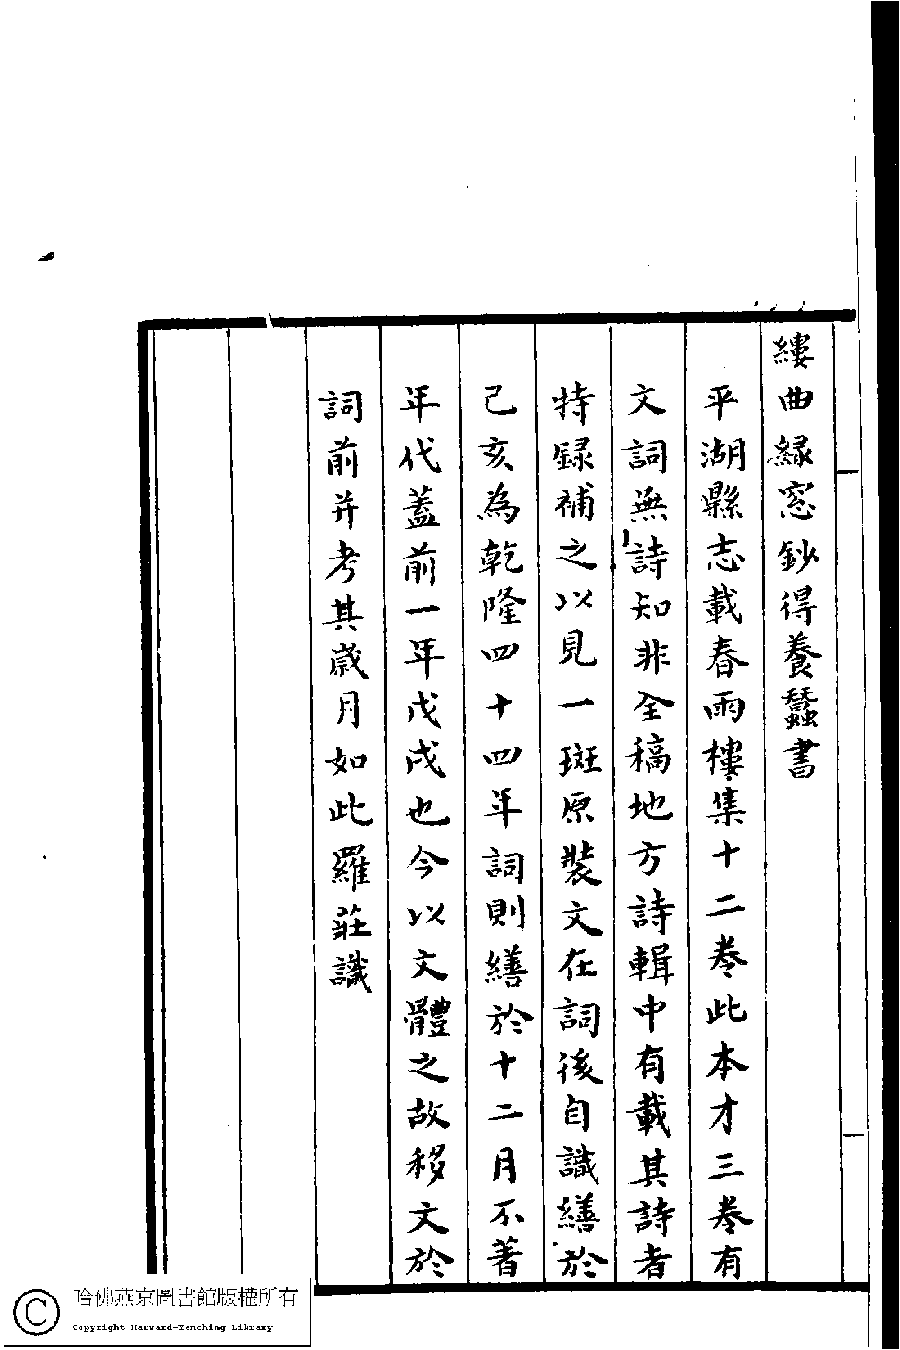 縷曲綠窓鈔得養蠶書
平湖縣志載春雨樓集十二卷此本才三卷有
文詞無詩知非全稿地方詩輯中有載其詩者
特録補之以見一斑原裝文在詞後自識繕於
己亥為乾隆四十四年詞則繕於十二月不著
年代蓋前一年戊戌也今以文體之故移文於
詞前并考其歲月如此羅莊識
哈佛燕京圖書館版權所有
Copyright Harvard-Yenching Library